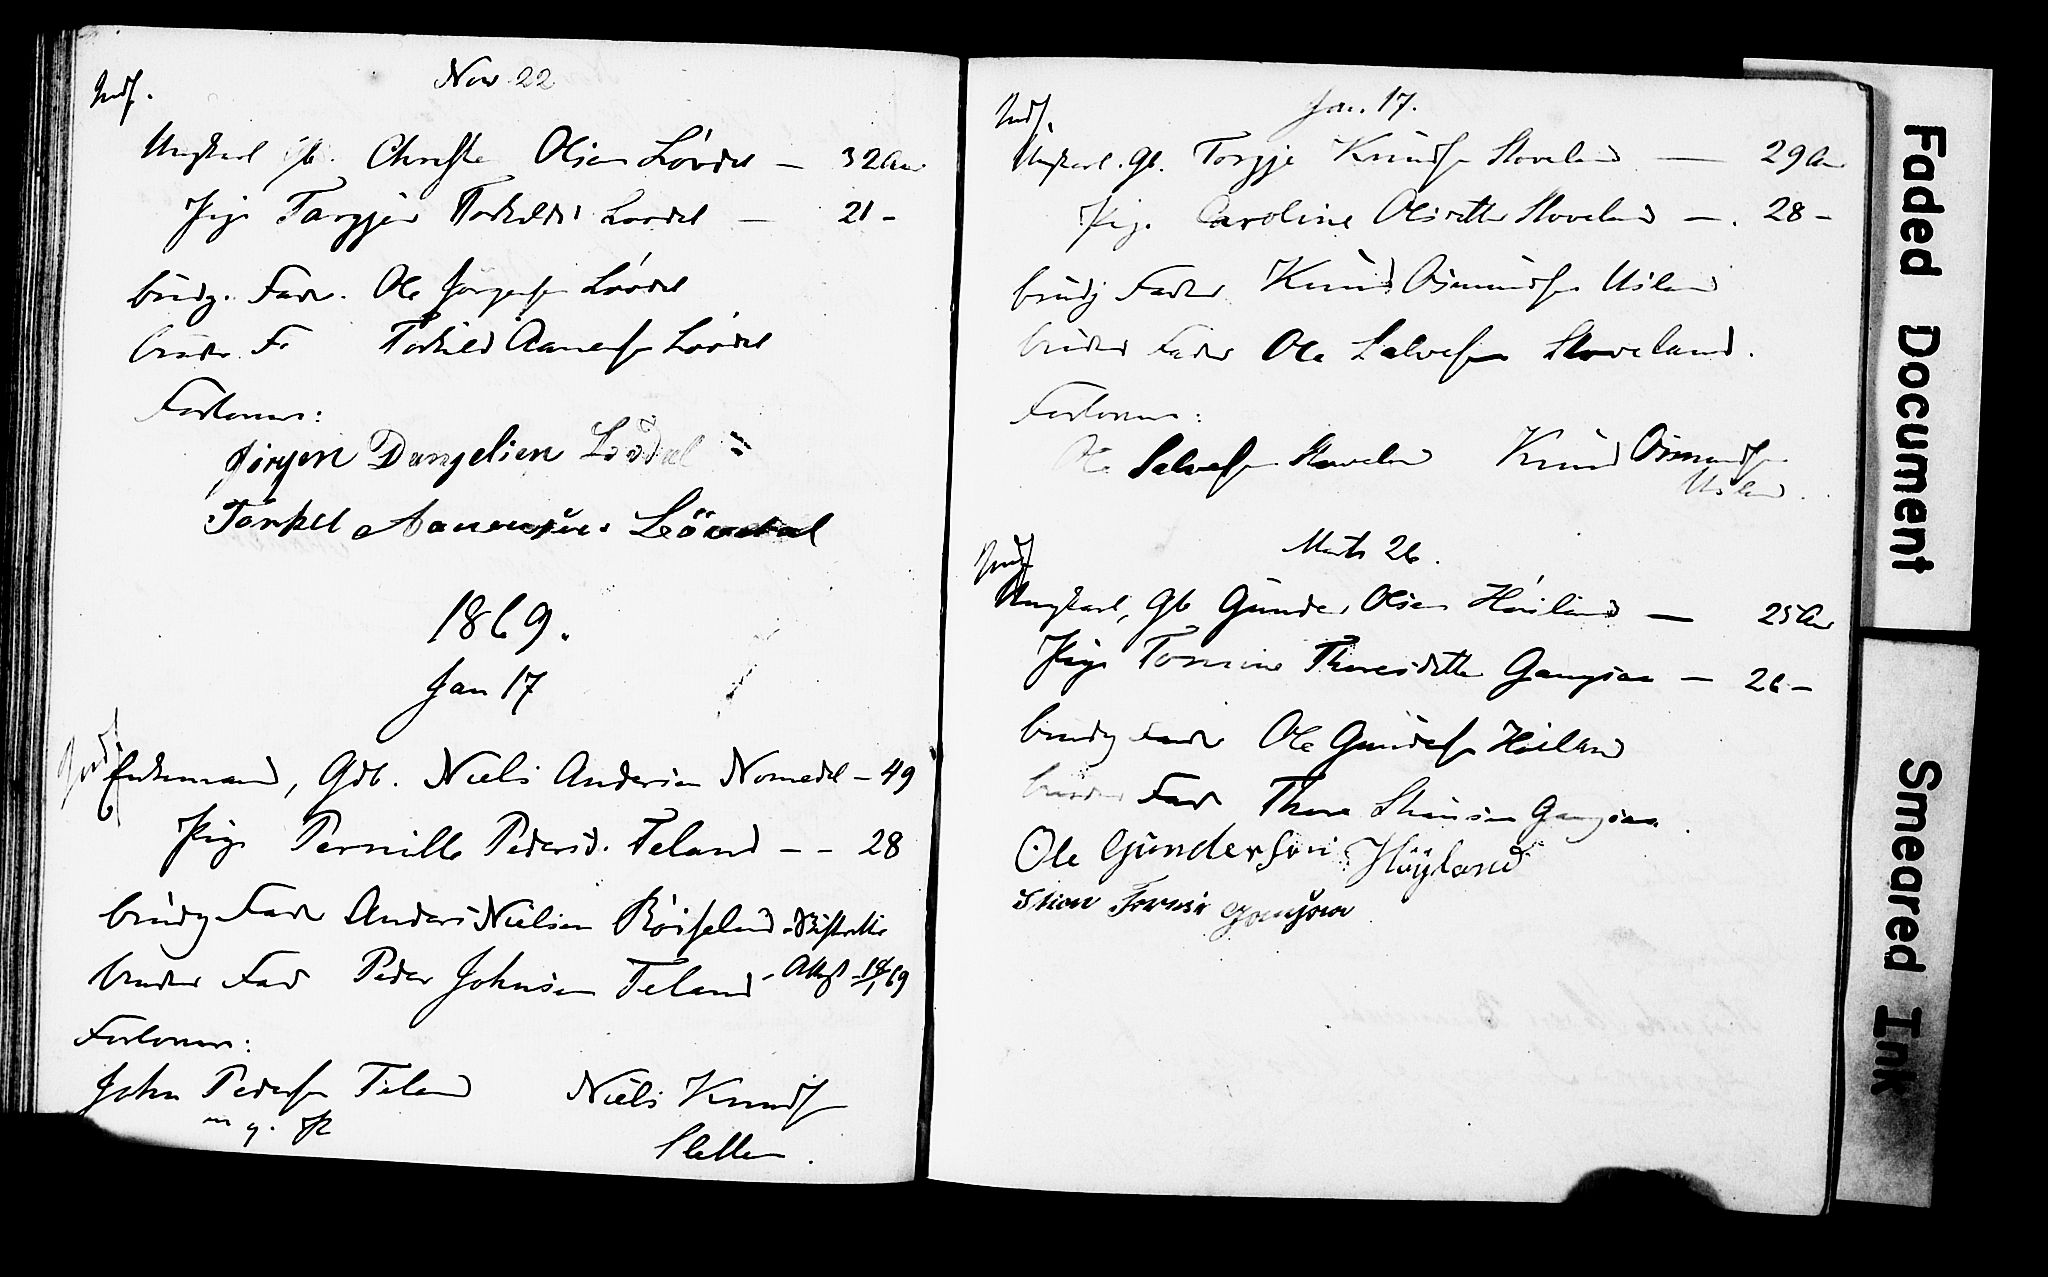 Nov 22
Indf.
Ungkarl Gb. Christen Olsen Lövdal — 32 Aar
Pige Targjer Torkelsd. Lövdal — 21 -
brudg. Fader. Ole Jörgensen Lövdal
brudens F. Torkild Aanensen Lövdal
Forlovere:
Jörgen Danjelsen Lövdal
Torkel Aanensen Lövdal
1869.
Jan 17
Indf
Enkemand, Gdb. Niels Andersen Nomedal — 49
Pige Pernille Pedersd. Feland — - 28
brudg Fader Anders Nielsen Röiseland
brudens Fader Peder Johnsen Feland - Attest 14/1 69
Forlovere:
John Pedersen Feland Niels Knudsen
m. p. P. Sletten.
Jan. 17.
Indf.
Ungkarl. Gb. Torgje Knudsen Stoveland — 29 Aar
Pige. Caroline Olsdatter Stoveland — . 28 -
brudg Fader Knud Osmundsen Usland
brudens Fader Ole Salvesen Stoveland.
Forlovere:
Ole Salvesen Stoveland Knud Osmundsen
Usland.
Marts 26.
Indf
Ungkarl, Gb Gunder Olsen Höiland — 25 Aar
Pige Tomine Theresdatter Gangsaa — 26 -
brudg Fader Ole Gundersen Höiland
brudens Fader There Gangsaa.
Ole Gunderson Höyland
Stien Gangsaa
Faded Document
Smeared Ink